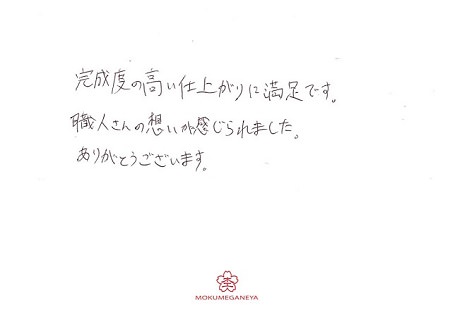 完成度の高い仕上がりに満足です。
職人さんの想いが感じられました。
ありがとうございます。
MOKUMEGANEYA